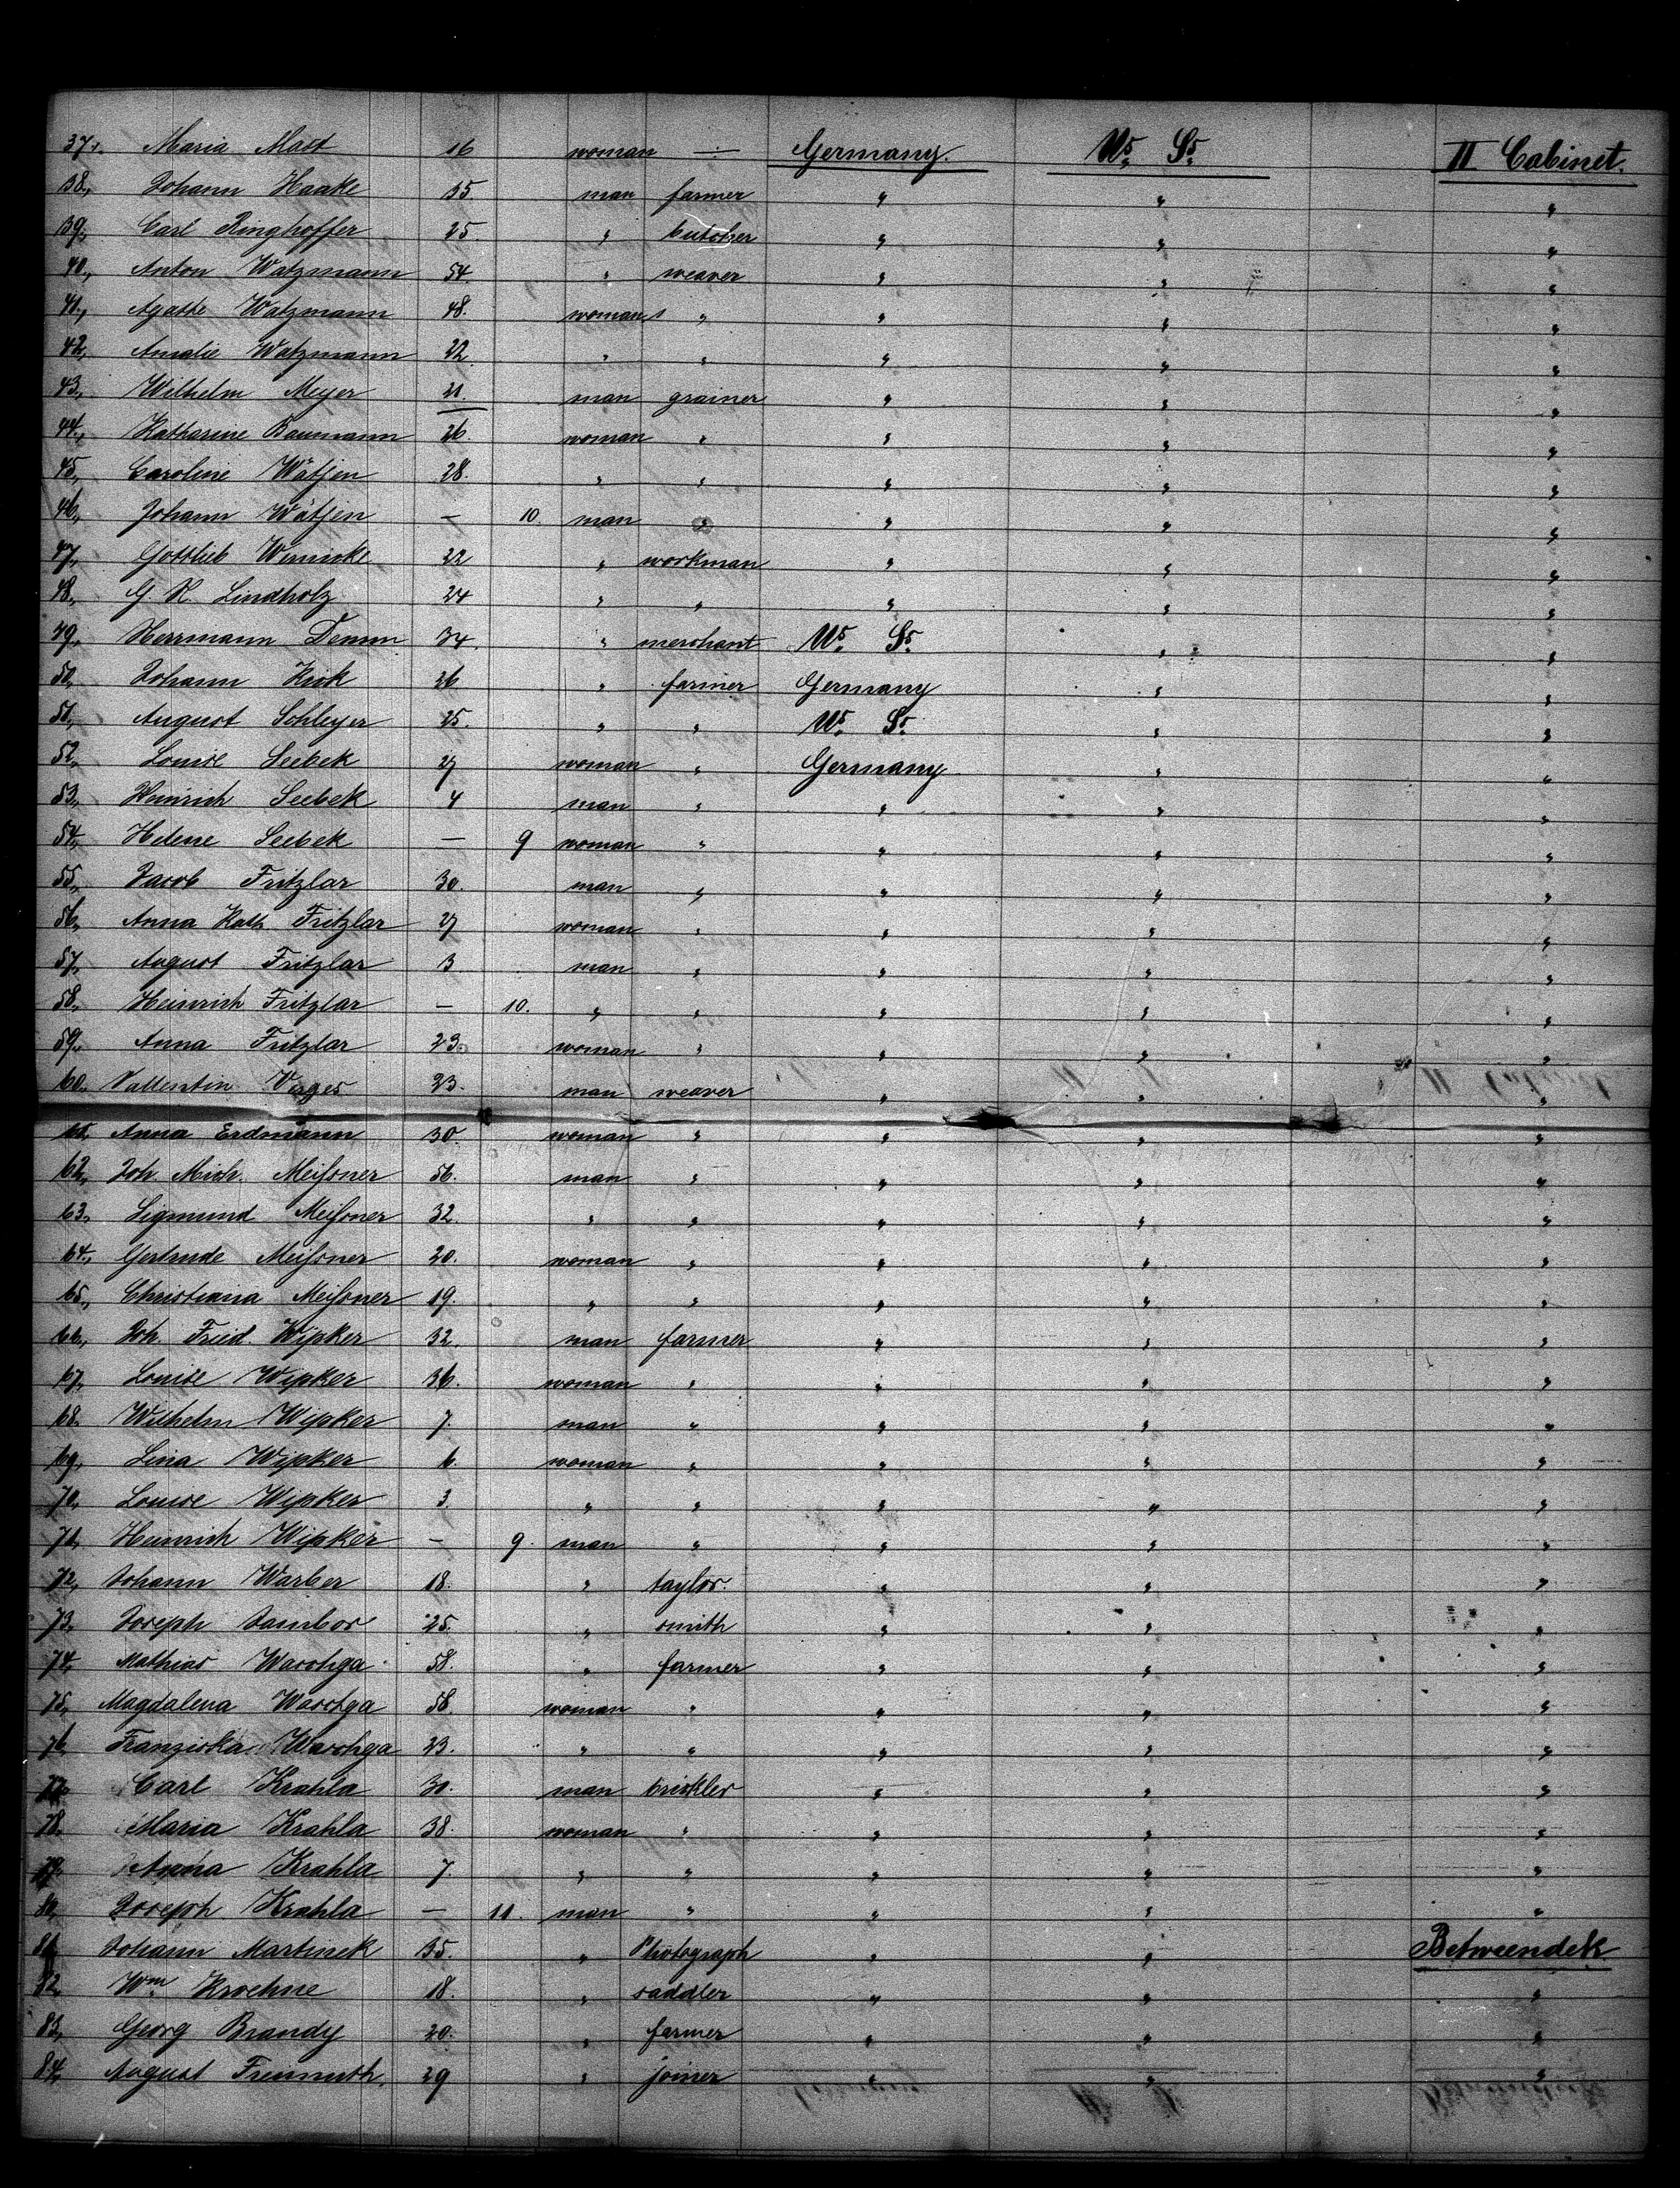 37. Maria Mast 16 woman ÷ Germany. Us. Ss. II Cabinet.
38., Johann Haake 35 man farmer " " "
39., Carl Ringhoffer 25. " butcher " " "
40., Anton Watzmann 54. " weaver " " "
41., Agathe Watzmann 48. woman " " " "
42., Amalie Watzmann 22 " " " " "
43., Wilhelm Meyer 21. man grainer " " "
44., Katharine Baumann 26. woman " " " "
45., Caroline Wätjen 28. " " " " "
46., Johann Wätjen — 10. man " " " "
47., Gottlieb Wernicke 22 " workman " " "
48., G. H. Lindholz 24 " " " " "
49., Herrmann Demm 34. " merchant Us. Ss. " "
50., Johann Kick 26 " farmer Germany " "
51., August Schleyer 25. " " Us. Ss. " "
52., Louise Seebek 27 woman " Germany " "
53., Heinrich Seebek 4 man " " " "
54., Helene Seebek — 9 woman " " " "
55., Jacob Fritzlar 30. man " " " "
56., Anna Kath. Fritzlar 27 woman " " " "
57., August Fritzlar 3 man " " " "
58., Heinrich Fritzlar — 10. " " " " "
59. Anna Fritzlar 23. woman " " " "
60. Vallentin Verges 23. man weaver " " "
61. Anna Erdmann 30. woman " " " "
62., Joh. Mich. Meiſsner 56. man " " " "
63. Sigmund Meiſsner 32. " " " " "
64., Gertrude Meiſsner 20. woman " " " "
65., Christiana Meiſsner 19. " " " " "
66., Joh. Fried. Wipker 32. man farmer " " "
67., Louise Wipker 36. woman " " " "
68. Wilhelm Wipker 7. man " " " "
69., Lina Wipker 6. woman " " " "
70., Louise Wipker 3. " " " " "
71., Heinrich Wipker — 9. man " " " "
72., Johann Warber 18. " taylor. " " "
73., Joseph Jambor 25. " smith " " "
74., Mathias Waschga 58. " farmer " " "
75., Magdalena Waschga 58. woman " " " "
76. Franziska Waschga 23. " " " " "
77. Carl Krahla 30. man brickler " " "
78. Maria Krahla 38. woman " " " "
79. Anna Krahla 7. " " " " "
80, Joseph Krahla — 11. man " " " "
81, Johann Martinek 35. " Photograph " " Betweendek
82, Wm. Kroehne 18. " saddler " " "
83, Georg Brandy 20. " farmer " " "
84, August Freimuth. 29 " joiner " " "